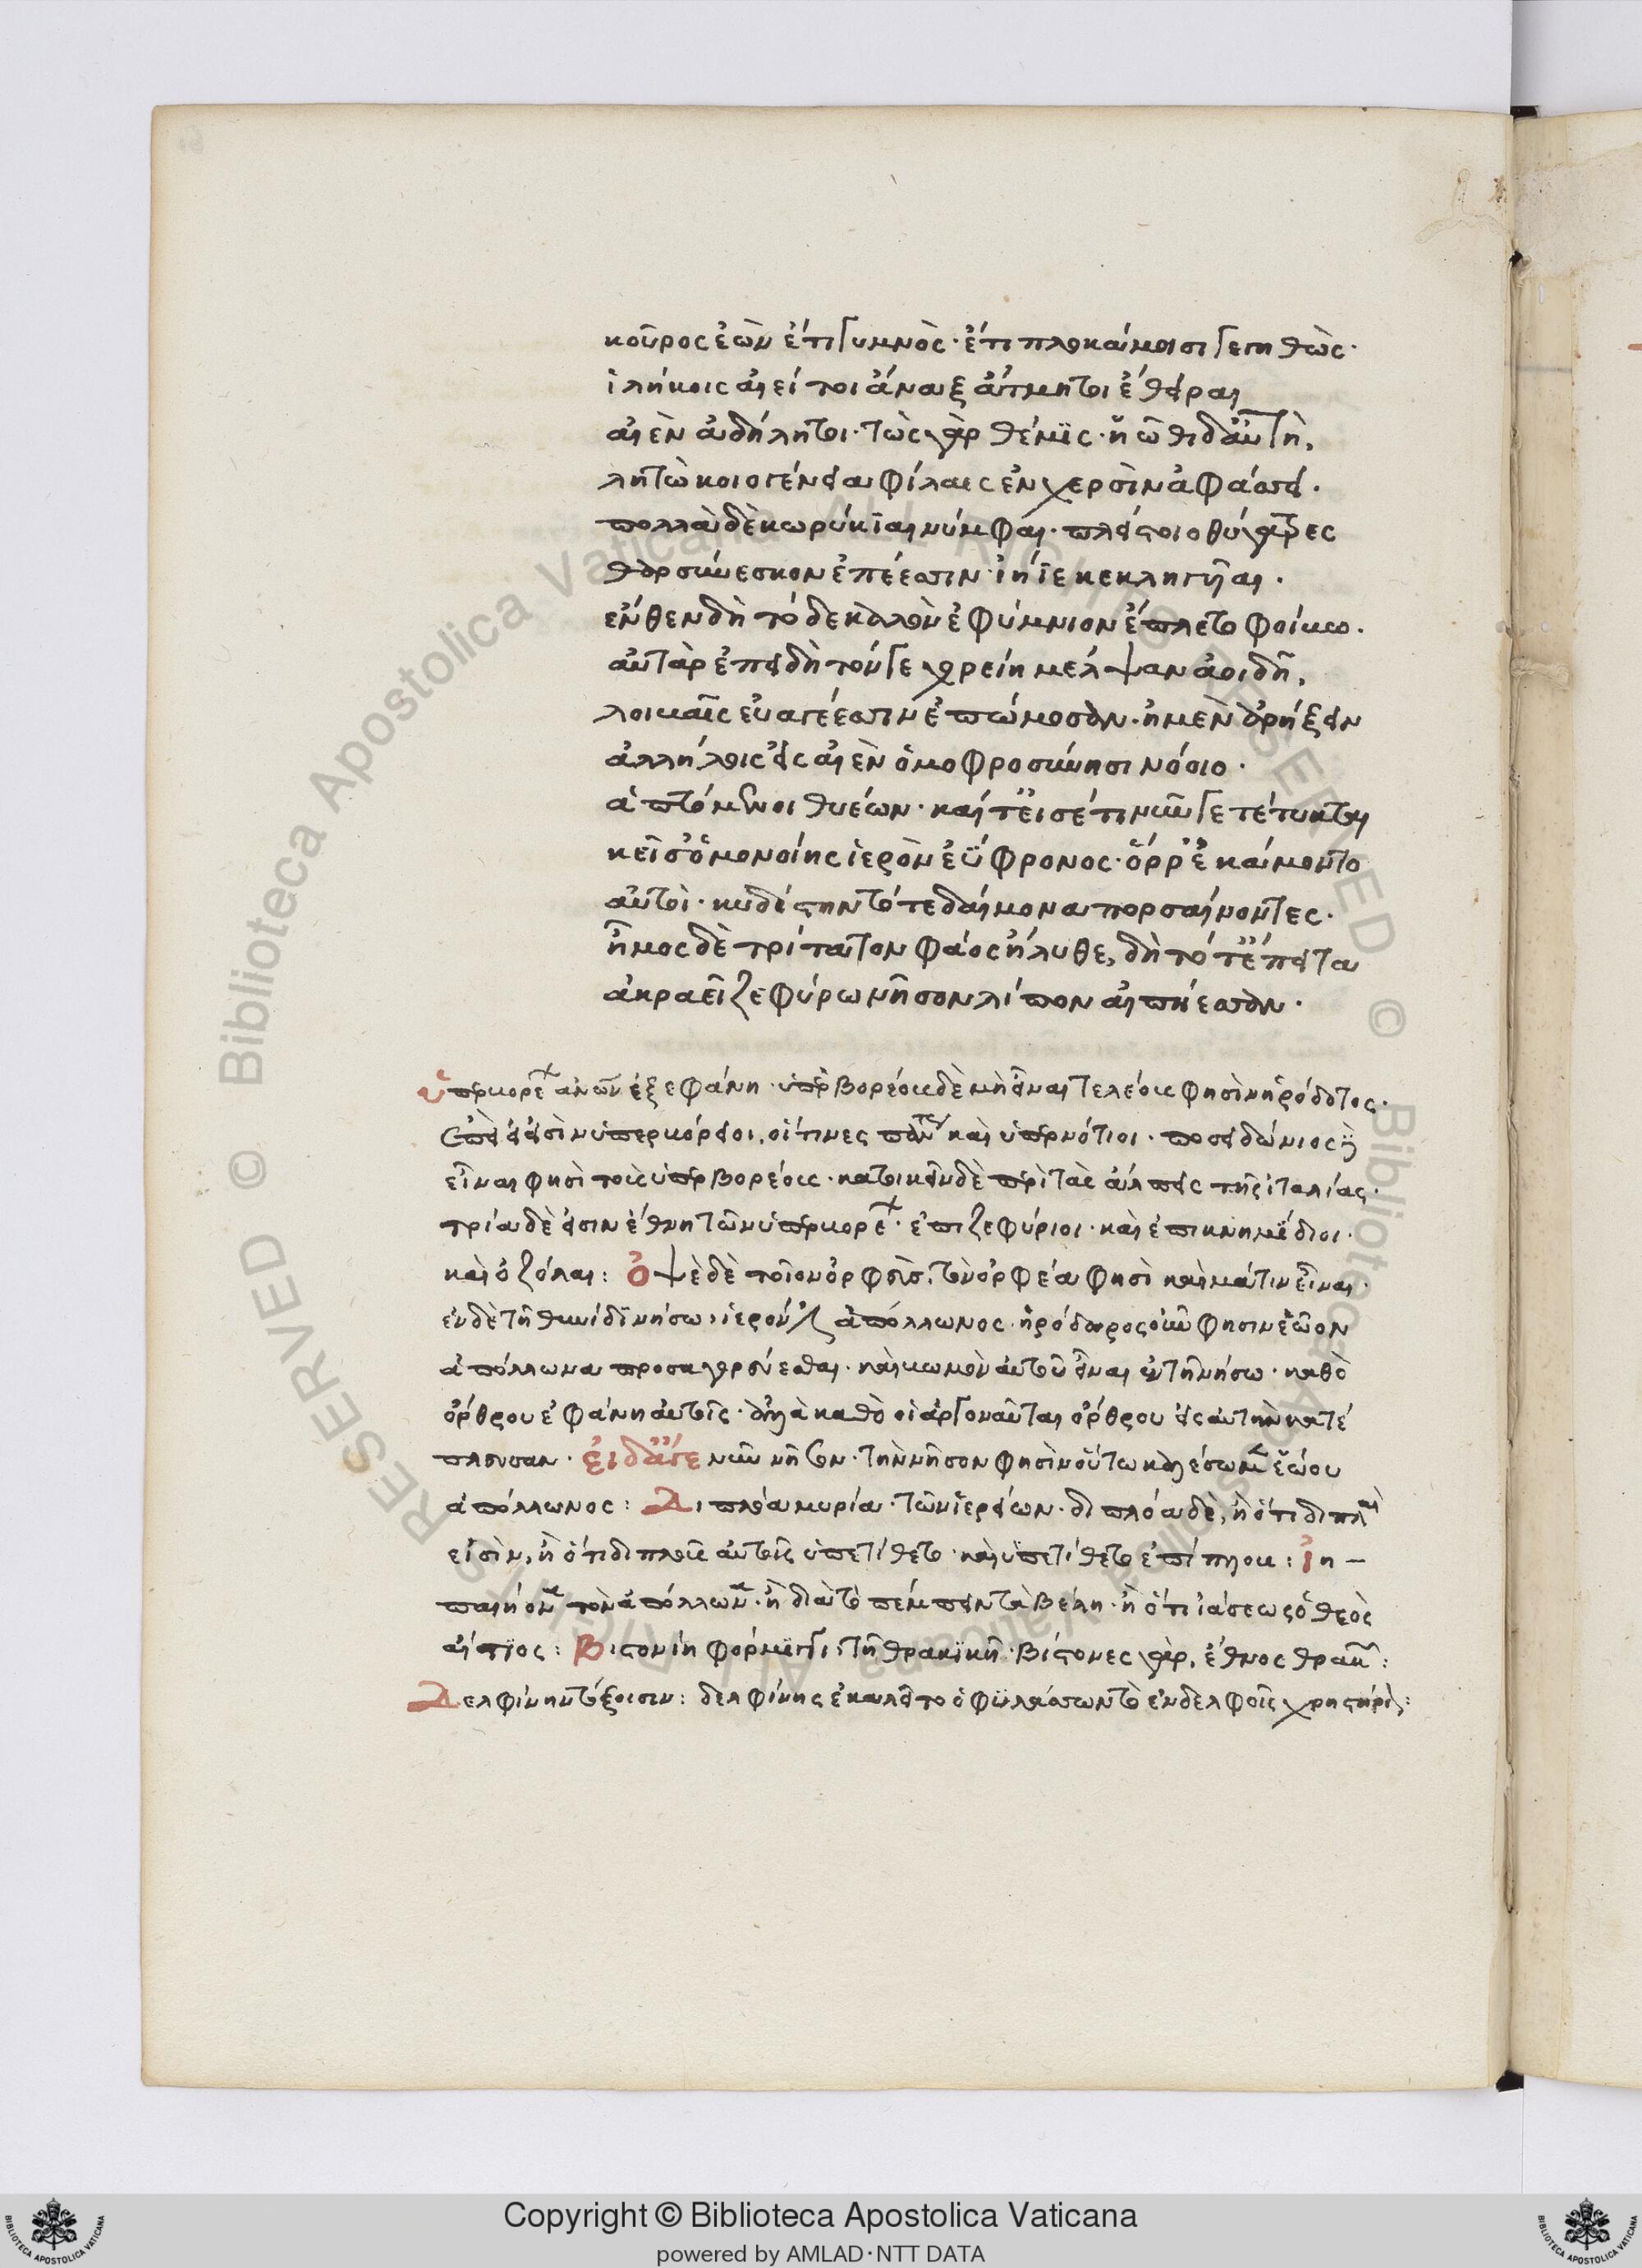 κοῦρος ἐὼν ἔτι γυμνὸς· ἔτι πλοκάμοισι γεγηθὼς·
ἱλήκοις αἰεί τοι ἄναξ ἄτμητοι ἔθειραι
αἰὲν ἀδήλητοι· τὼς γὰρ θέμις· ἢ ὦθι δ' αὐτὴ,
λητὼ κοιογένεια φίλαις ἐν χερσὶν ἀφάσσει·
πολλὰ δὲ κωρύκιαι νύμφαι· πλείστοιο θύγατρες
θαρσύνεσκον ἐπέεσσιν· ἰήϊε κεκληγῆαι·
ἔνθεν δὴ τόδε καλὸν ἐφύμνιον ἔπλετο φοίβω·
αὐτὰρ ἐπειδὴ τόνγε χορείη μέλψαν ἀοιδῆ,
λοιβαῖς εὐαγέεσσιν ἐπώμοσαν· ἠμὲν ἀρήξειν
ἀλλήλοις εἰς αἰὲν ὁμοφροσύνησι νόοιο·
ἁπτόμενοι θυέων· καί τ' εἰσέτι νῦν γε τέτυκται
κεῖσ' ὁμονοίης ἱερὸν ἐΰφρονος· ὅρρ' ἐκάμοντο
αὐτοὶ· κυδίστην τότε δαίμονα πορσαίνοντες·
ἦμος δὲ τρίτατον φάος ἤλυθε, δὴ τότ' ἔπειτα
ἀκραεῖ ζεφύρω νῆσον λίπον αἰπήεσσαν·
ὑπερβορέων ἀνῶν ἐξεφάνη· ὑπερβορέους δὲ μὴ εἶναι τελέως φησὶν ἡρόδοτος·
εἰσὶν ὑπερβόρειοι, οἵτινες καὶ ὑπερνότιοι· ποσειδώνιος
εἶναι φησὶ τοὺς ὑπερβορέους· κατοικεῖν δὲ περὶ τὰς ἄλπεις τῆς ἰταλίας·
τρία δέ εἰσιν ἔθνη τῶν ὑπερβορέων· ἐπιζεφύριοι· καὶ ἐπικνημίδιοι·
καὶ ὀζόλαι: Ὀψὲ δὲ τοῖον ὀρφεὺς· τὸν ὀρφέα φησὶ καὶ μάντιν εἶναι·
ἐν δὲ τῆ θυνίδι νήσω, ἱερόν ἀπόλλωνος· ἡρόδωρος οὖν φησιν ἑῶον
ἀπόλλωνα προσαγορεύεσθαι· καὶ βωμὸν αὐτοῦ εἶναι ἐν τῆ νήσω· καθὸ
ὄρθρου ἐφάνη αὐτοῖς· ἀλλὰ καθὸ οἱ ἀργοναῦται ὄρθρου εἰς αὐτὴν κατέ
πλευσαν· εἰ δ' ἄγε νῦν νῆσον· τὴν νῆσον φησὶν οὕτω καλέσωμεν ἑώου
ἀπόλλωνος: Διπλόα μηρία· τῶν ἱερείων· διπλόα δὲ, ἢ ὅτι διπλαῖ
εἰσὶν, ἢ ὅτι διπλοῦς αὐτοῖς ὑπετίθετο καὶ ὑπετίθετο ἐπίπλους: Ἰη-
παιήονα τὸν ἀπόλλωνα· ἢ διὰ τὸ πέμπειν τὰ βέλη· ἢ ὅτι ἰάσεως ὁ θεὸς
αἴτιος: Βιστονίη φόρμιγγι· τῆ θρακικῆ· βίστονες γὰρ, ἔθνος θράκης:
Δελφίνην τόξοισιν: δελφίνης ἐκαλεῖτο ὁ φυλάσσων τὸ ἐν δελφοῖς χρηστήριον:
Copyright © Biblioteca Apostolica Vaticana
powered by AMLAD·NTT DATA